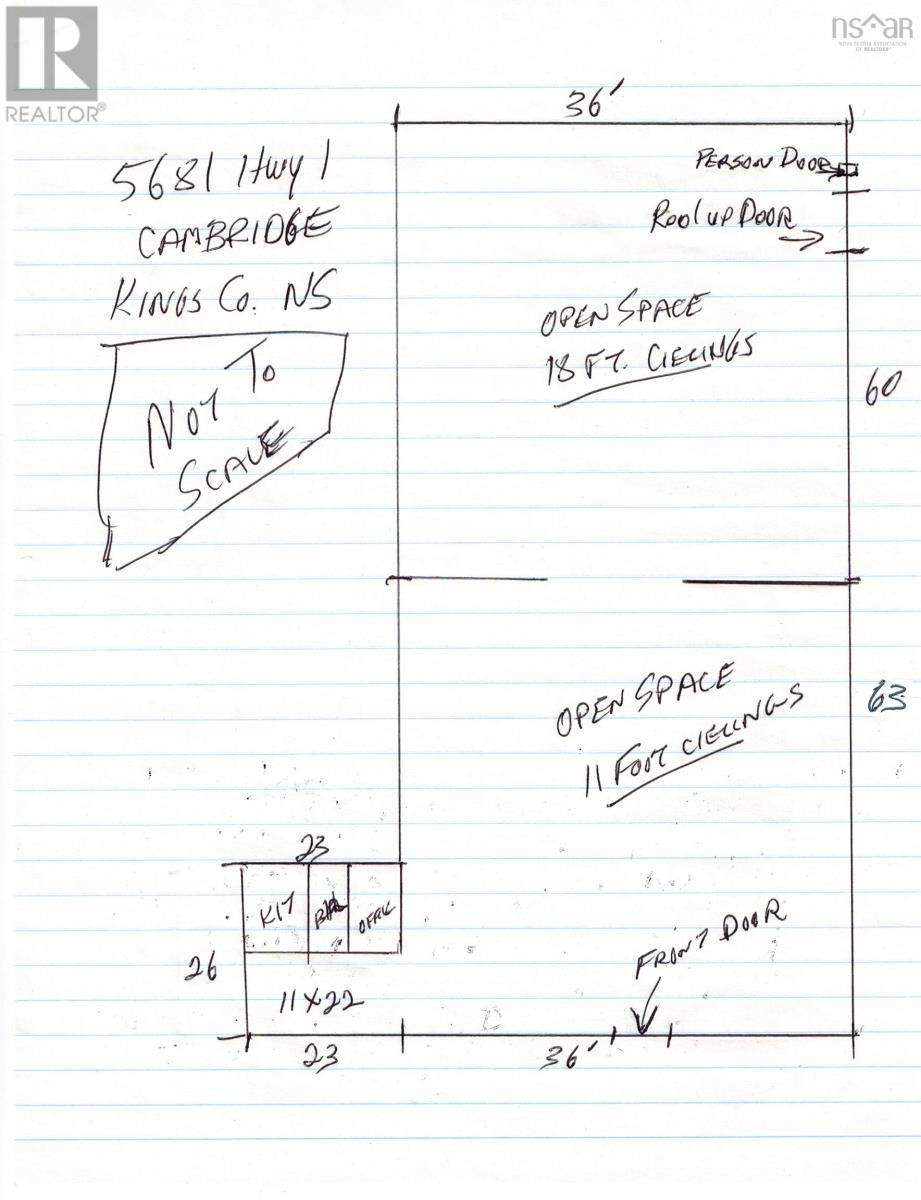 REALTOR®
nsar
NOVA SCOTIA ASSOCIATION
OF REALTORS®
36'
5681 Hwy 1
CAMBRIDGE
KINGS Co. NS
NOT TO
SCALE
PERSON DOOR
Rool up DOOR
OPEN SPACE
18 FT. CIELINGS
60
OPEN SPACE
11 FOOT CIELINGS
63
23
KIT
26
11 X 22
FRONT DOOR
23
36'